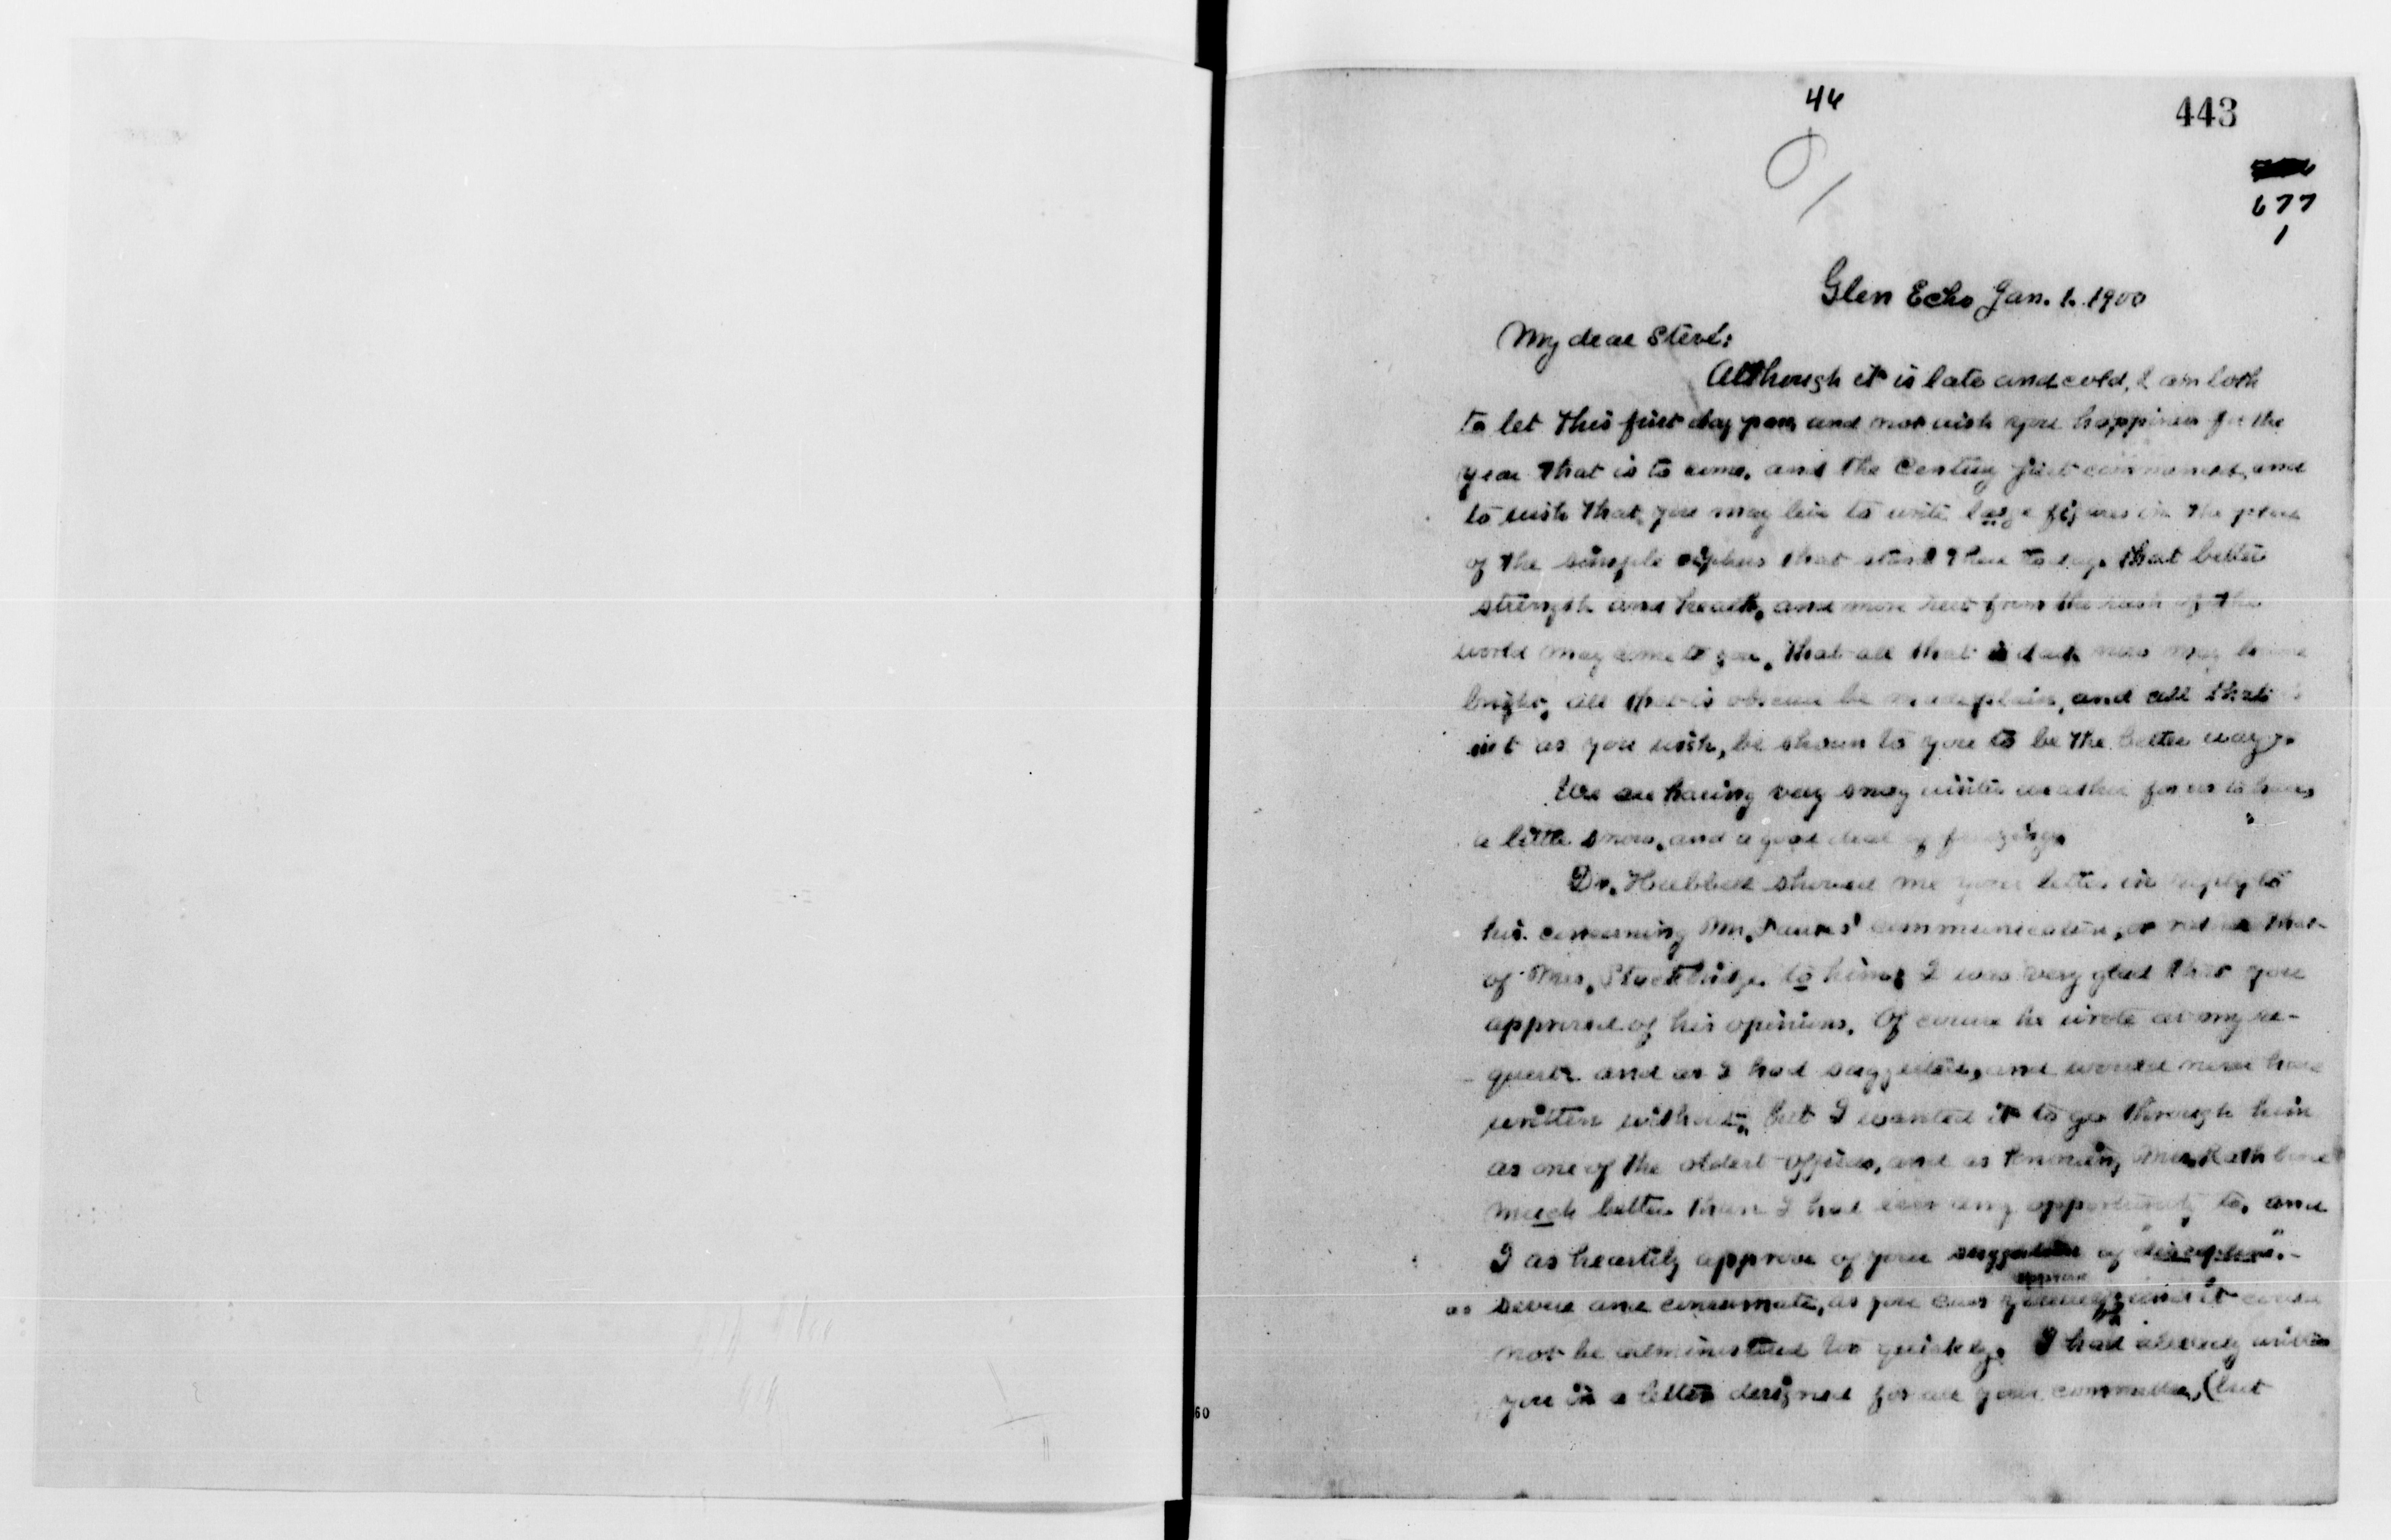 44
443
677
1
Glen Echo Jan. 1. 1900
My dear Steve:
Although it is late and cold, I am loth
to let this first day pass and not wish you happiness for the
year that is to come, and the Century just commenced, and
to wish that you may live to write large figures in the place
of the simple ciphers that stand there today. that better
strength and health, and more rest from the rush of the
world may come to you, that all that is dark now may become
bright, all that is obscure be made plain, and all that
not as you wish, be shown to you to be the better way.
We are having very snug winter weather for us to have,
a little snow, and a good deal of freezing.
Dr. Hubbell showed me your letter in reply to
his concerning Mr. communication, or rather that
of Mrs. to him; I was very glad that you
approved of his opinions. Of course he wrote at my re-
quest and as I had suggested, and would never have
written without, but I wanted it to go through him
as one of the oldest officers, and as knowing Mrs. Rathbone
much better than I had ever any opportunity to, and
I as heartily approve of your suggestion of "discipline".-
as severe and consummate, as you can approve and it could
not be administered too quickly. I had already written
you in a letter designed for all your committee, (but
60